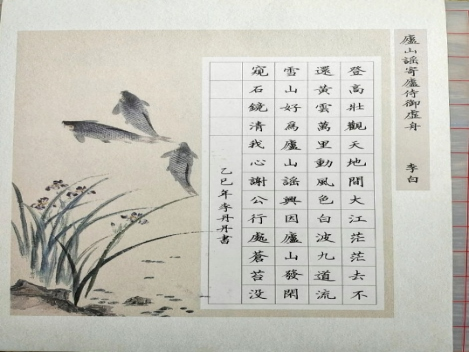 廬山謠寄廬侍御虛舟
李白
登高壯觀天地間大江茫茫去不
還黃雲萬里動風色白波九道流
雪山好為廬山謠興因廬山發閑
窺石鏡清我心謝公行處蒼苔没
乙巳年李丹丹書